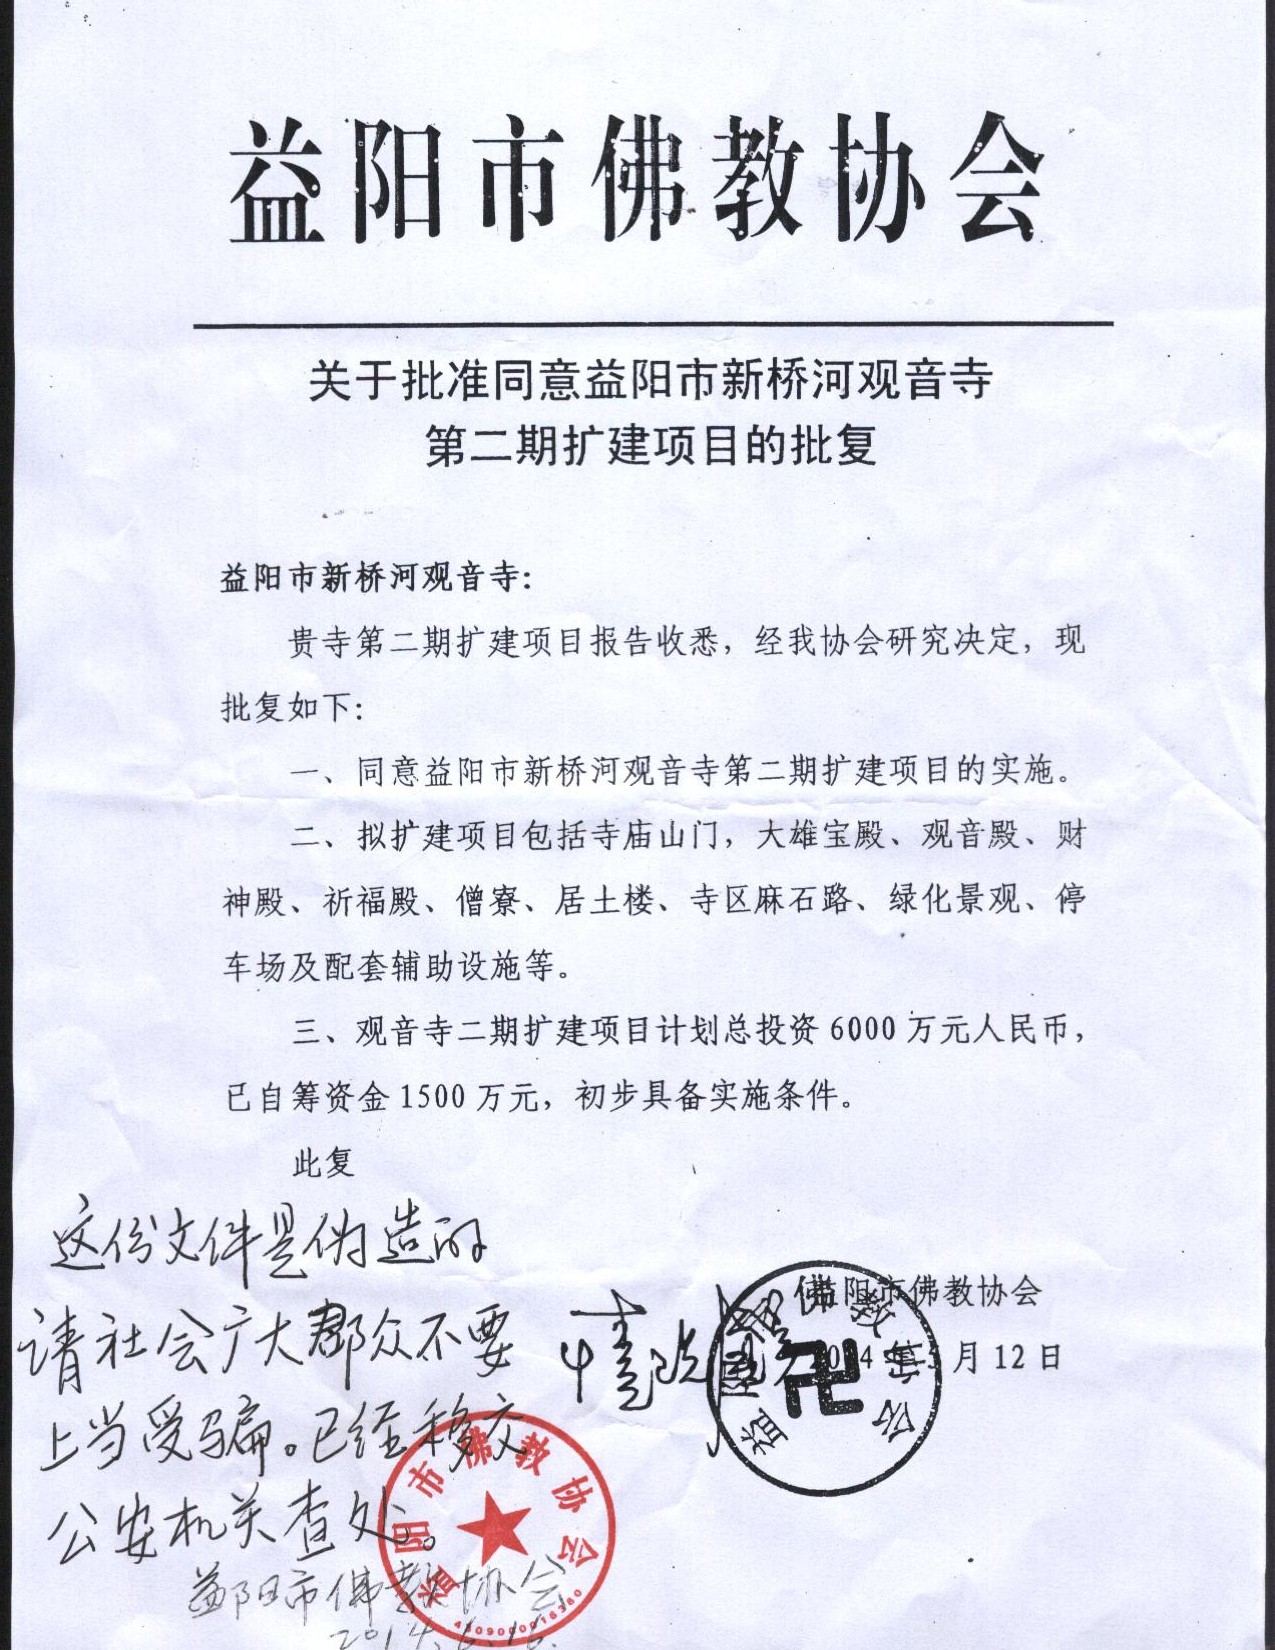 益阳市佛教协会
关于批准同意益阳市新桥河观音寺
第二期扩建项目的批复
益阳市新桥河观音寺：
贵寺第二期扩建项目报告收悉，经我协会研究决定，现
批复如下：
一、同意益阳市新桥河观音寺第二期扩建项目的实施。
二、拟扩建项目包括寺庙山门，大雄宝殿、观音殿、财
神殿、祈福殿、僧寮、居士楼、寺区麻石路、绿化景观、停
车场及配套辅助设施等。
三、观音寺二期扩建项目计划总投资 6000 万元人民币，
已自筹资金 1500 万元，初步具备实施条件。
此复
益阳市佛教协会
2014 年 5 月 12 日
益阳市佛教协会
这份文件是伪造的
请社会广大群众不要
上当受骗。已经移交
公安机关查处。
益阳市佛教协会
2014.6.16.
益阳市佛教协会